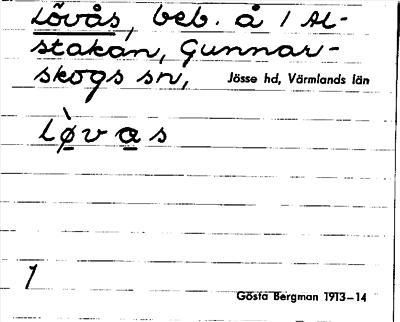 Lövås, beb. å 1 Al-
stakan, Gunnar-
skogs sn, Jösse hd, Värmlands län
lø̀vas
1
Gösta Bergman 1913–14